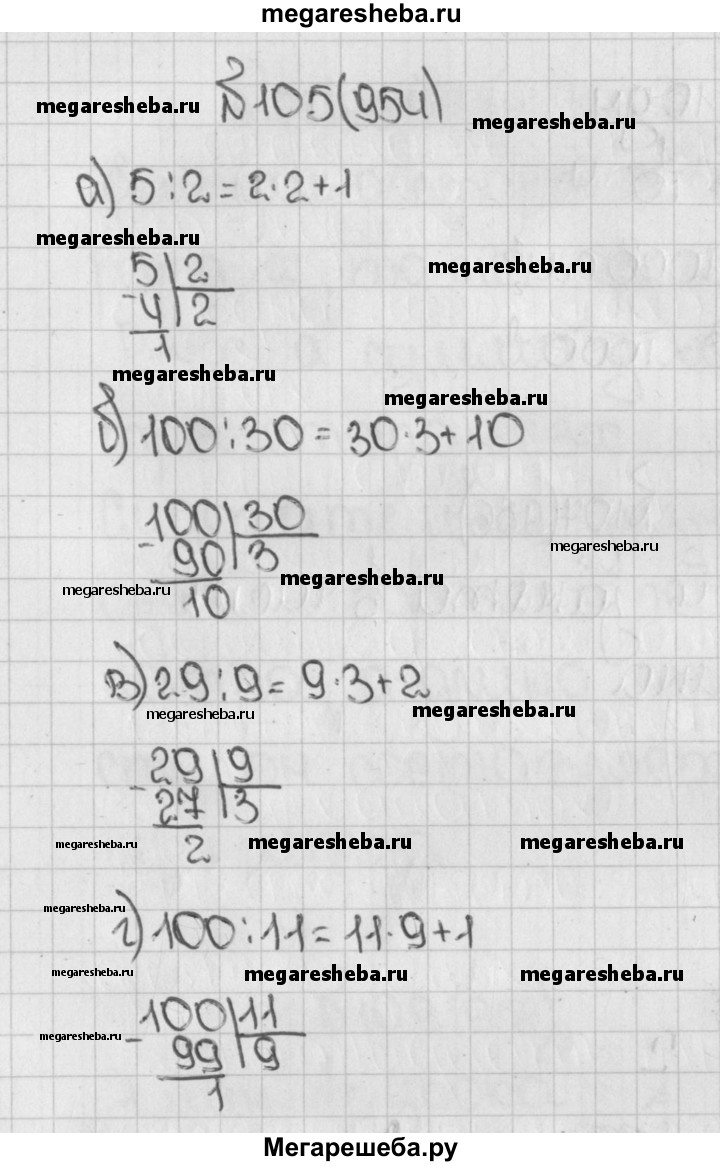 megaresheba.ru
№105(954)
megaresheba.ru
megaresheba.ru
а) 5:2=2·2+1
megaresheba.ru
megaresheba.ru
5|2
-4|2
1
megaresheba.ru
megaresheba.ru
б) 100:30=30·3+10
100|30
-90|3
megaresheba.ru
megaresheba.ru
megaresheba.ru
10
в) 29:9=9·3+2
megaresheba.ru
megaresheba.ru
29|9
-27|3
2
megaresheba.ru
megaresheba.ru
megaresheba.ru
megaresheba.ru
г) 100:11=11·9+1
megaresheba.ru
megaresheba.ru
megaresheba.ru
100|11
-99|9
megaresheba.ru
1
Мегарешеба.ру